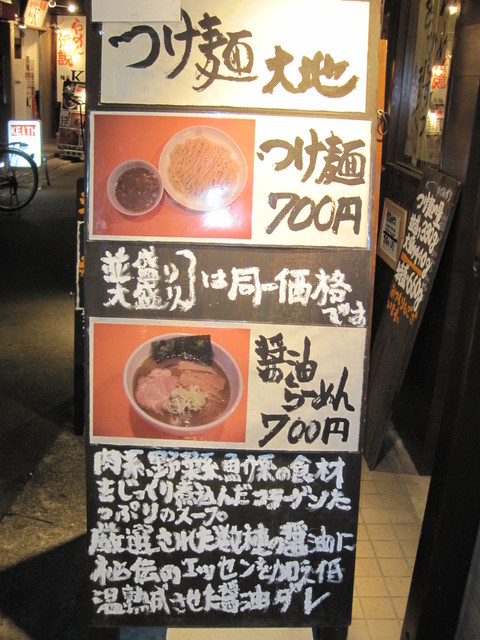 つけ麺 大地
つけ麺
700円
並盛り
大盛り
は同一価格
です
醤油
らーめん
700円
肉系、野菜系、魚介系の食材
をじっくり煮込んだコラーゲンた
っぷりのスープ。
厳選された数種の醤油に
秘伝のエッセンを加え低
温熟成させた醤油ダレ
KEITH